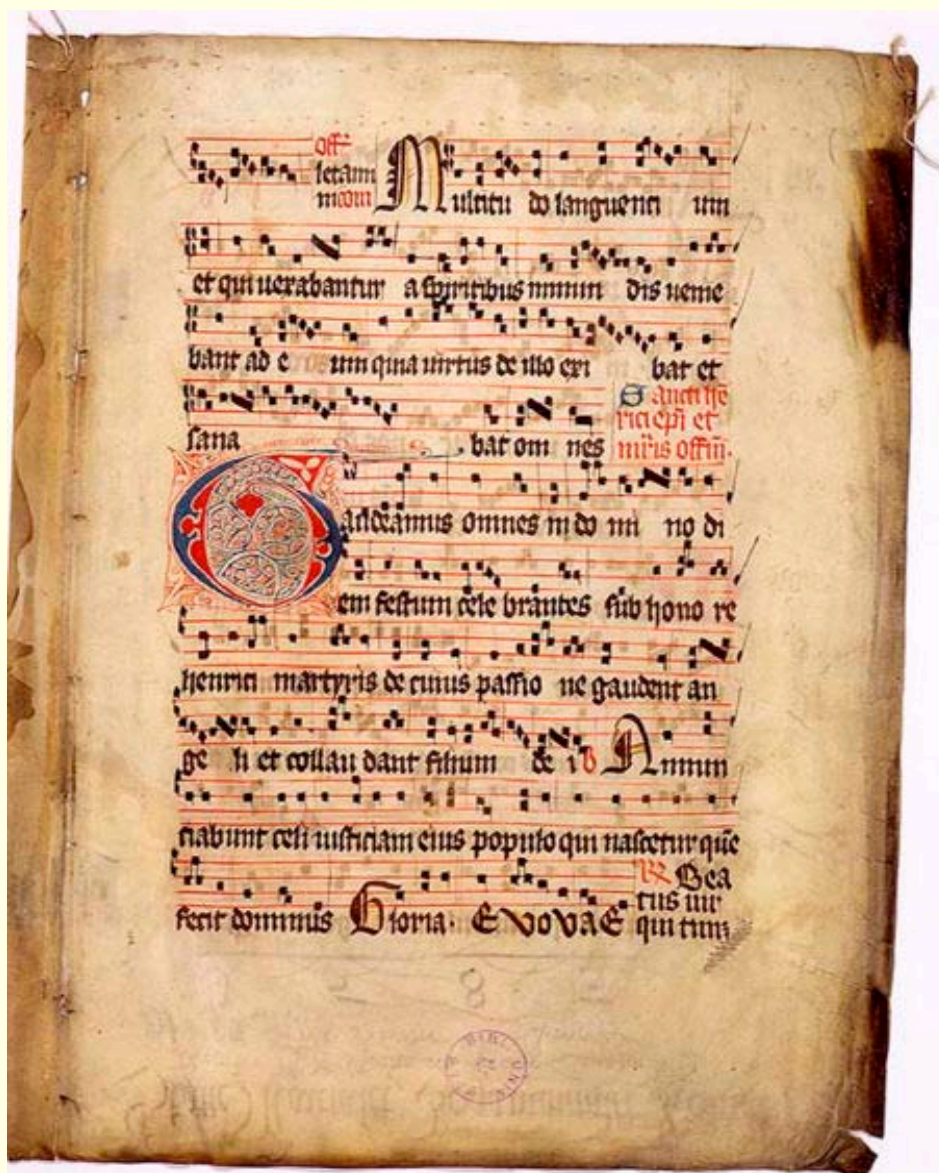 off
letami
ni com Multitu do languenti um
et qui vexabantur a spiritibus inmun dis venie
bant ad e um quia virtus de illo exi bat et
sana bat om nes
Sancti hē
rici epi et
mris offm.
Gaudeamus omnes in do mi no di
em festum cele brantes sub hono re
henrici martyris de cuius passio ne gaudent an
ge li et collau dant filium de i Annun
ciabunt celi iusticiam eius populo qui nascetur quē
fecit dominus Gloria. EVOVAE
Bea
tus vir
qui tim